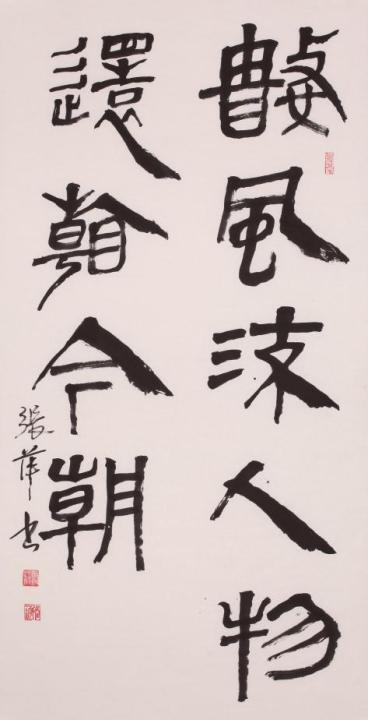 數風流人物
還看今朝
張書